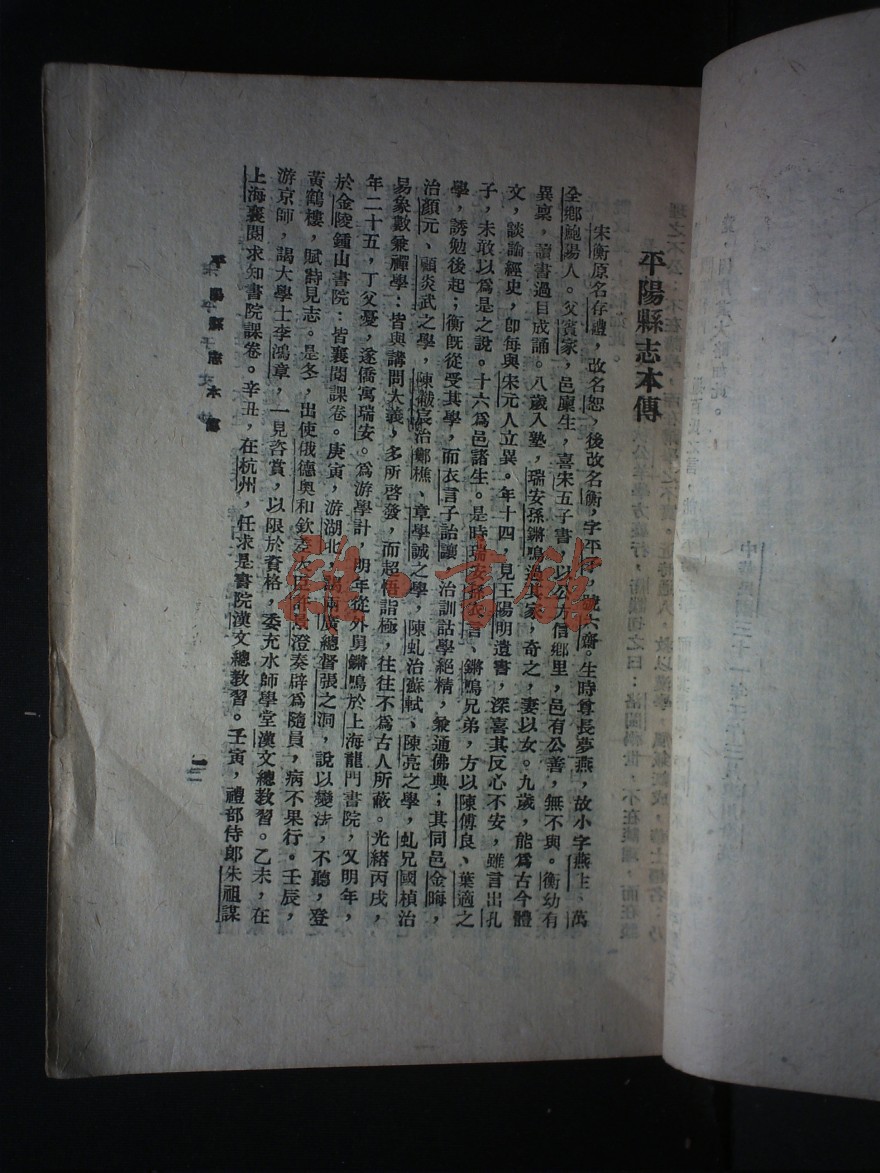 平陽縣志本傳
宋衡原名存禮，改名恕，後改名衡，字平子，號六齋。生時尊長夢燕，故小字燕生、萬
全鄉鮑陽人。父賓家，邑廩生，喜宋五子書，以公方信鄉里，邑有公善，無不與。衡幼有
異稟，讀書過目成誦。八歲入塾，瑞安孫鏘鳴過其家，奇之，妻以女。九歲，能爲古今體
文，談論經史，卽每與宋元人立異。年十四，見王陽明遺書，深喜其反心不安，雖言出孔
子，未敢以爲是之說。十六爲邑諸生。是時瑞安孫衣言、鏘鳴兄弟，方以陳傅良、葉適之
學，誘勉後起；衡旣從受其學，而衣言子詒讓，治訓詁學絕精，兼通佛典；其同邑金晦，
治顏元、顧炎武之學，陳黻宸治鄭樵、章學誠之學，陳虬治蘇軾、陳亮之學，虬兄國楨治
易象數兼禪學：皆與講問大義，多所啓發，而超悟詣極，往往不爲古人所蔽。光緒丙戌，
年二十五，丁父憂，遂僑寓瑞安。爲游學計，明年從外舅鏘鳴於上海龍門書院，又明年，
於金陵鍾山書院：皆襄閱課卷。庚寅，游湖北，謁兩廣總督張之洞，說以變法，不聽，登
黃鶴樓，賦詩見志。是冬，出使俄德奥和欽差大臣許景澄奏辟爲隨員，病不果行。壬辰，
游京師，謁大學士李鴻章，一見咨賞，以限於資格，委充水師學堂漢文總敎習。乙未，在
上海襄閱求知書院課卷。辛丑，在杭州，任求是書院漢文總敎習。壬寅，禮部侍郎朱祖謀
平陽縣志本傳
雜·書館